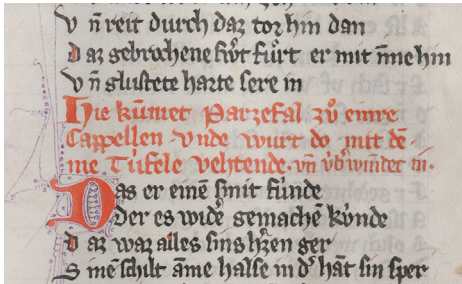 V n̄ reit durch daz tor hin dan
D az gebrochene swͦrt fuͦrt er mit īme hin
V n̄ glustete harte sere in
Hie kūmet Parzefal zuͦ einre
Cappellen vnde wurt do mit dē
me Tuͤfele vehtende · vn̄ v̓bˀwindet in ·
Das er einē smit funde
Der es widˀ gemachē kunde
D az waz alles sins hˀzen ger
S inē schilt āme halse in dˀ hāt sin sper